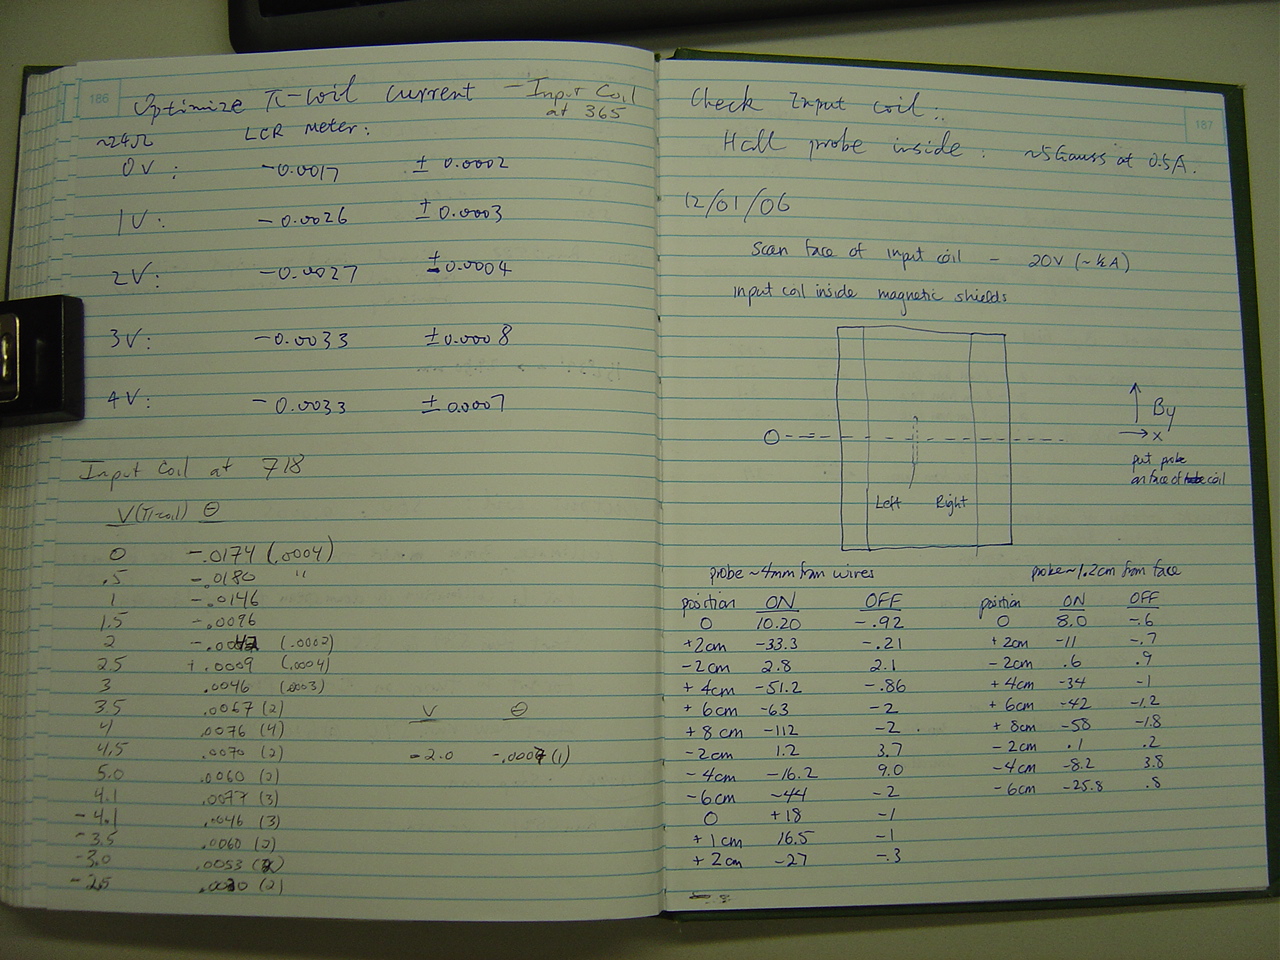 186
Optimize π-coil current - Input Coil
at 365
~24Ω LCR meter:
0V: -0.0017 ± 0.0002
1V: -0.0026 ± 0.0003
2V: -0.0027 ± 0.0004
3V: -0.0033 ± 0.0008
4V: -0.0033 ± 0.0007
Input Coil at 718
V(π-coil) Θ
0 -.0174 (.0004)
.5 -.0180 "
1 -.0146
1.5 -.0096
2 (.0002)
2.5 + .0009 (.0004)
3 .0046 (.0003)
3.5 .0067 (2)
4 .0076 (4)
4.5 .0070 (2)
5.0 .0060 (2)
4.1 .0077 (3)
-4.1 .0046 (3)
-3.5 .0060 (2)
-3.0 .0053
-2.5 .0030 (2)
V Θ
-2.0 -.0007 (1)
187
Check Input coil:
Hall probe inside: ~5 Gauss at 0.5A.
12/01/06
scan face of input coil - 20V (~½A)
input coil inside magnetic shields
0
By
x
put probe
on face of coil
Left Right
probe ~4mm from wires
position ON OFF
0 10.20 -.92
+2cm -33.3 -.21
-2cm 2.8 2.1
+4cm -51.2 -.86
+6cm -63 -2
+8cm -112 -2
-2cm 1.2 3.7
-4cm -16.2 9.0
-6cm -44 -2
0 +18 -1
+1cm 16.5 -1
+2cm -27 -.3
probe ~1.2cm from face
position ON OFF
0 8.0 -.6
+2cm -11 -.7
-2cm .6 .9
+4cm -34 -1
+6cm -42 -1.2
+8cm -58 -1.8
-2cm .1 .2
-4cm -8.2 3.8
-6cm -25.8 .8